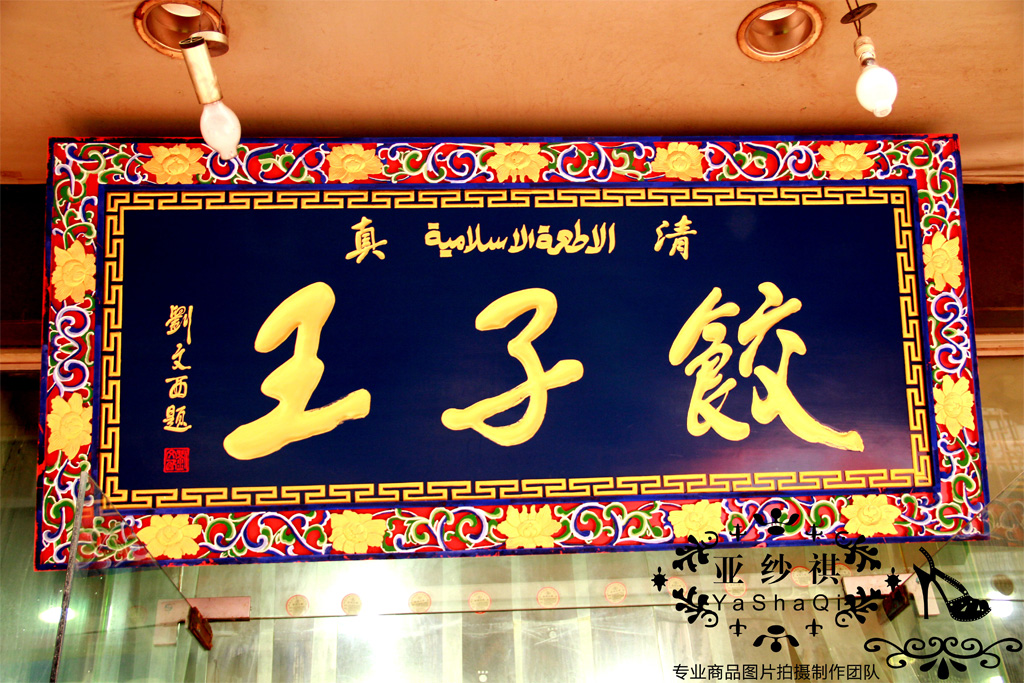 清 الاطعمة الاسلامية 真
餃子王
劉文西題
亚纱祺
YaShaQi
专业商品图片拍摄制作团队